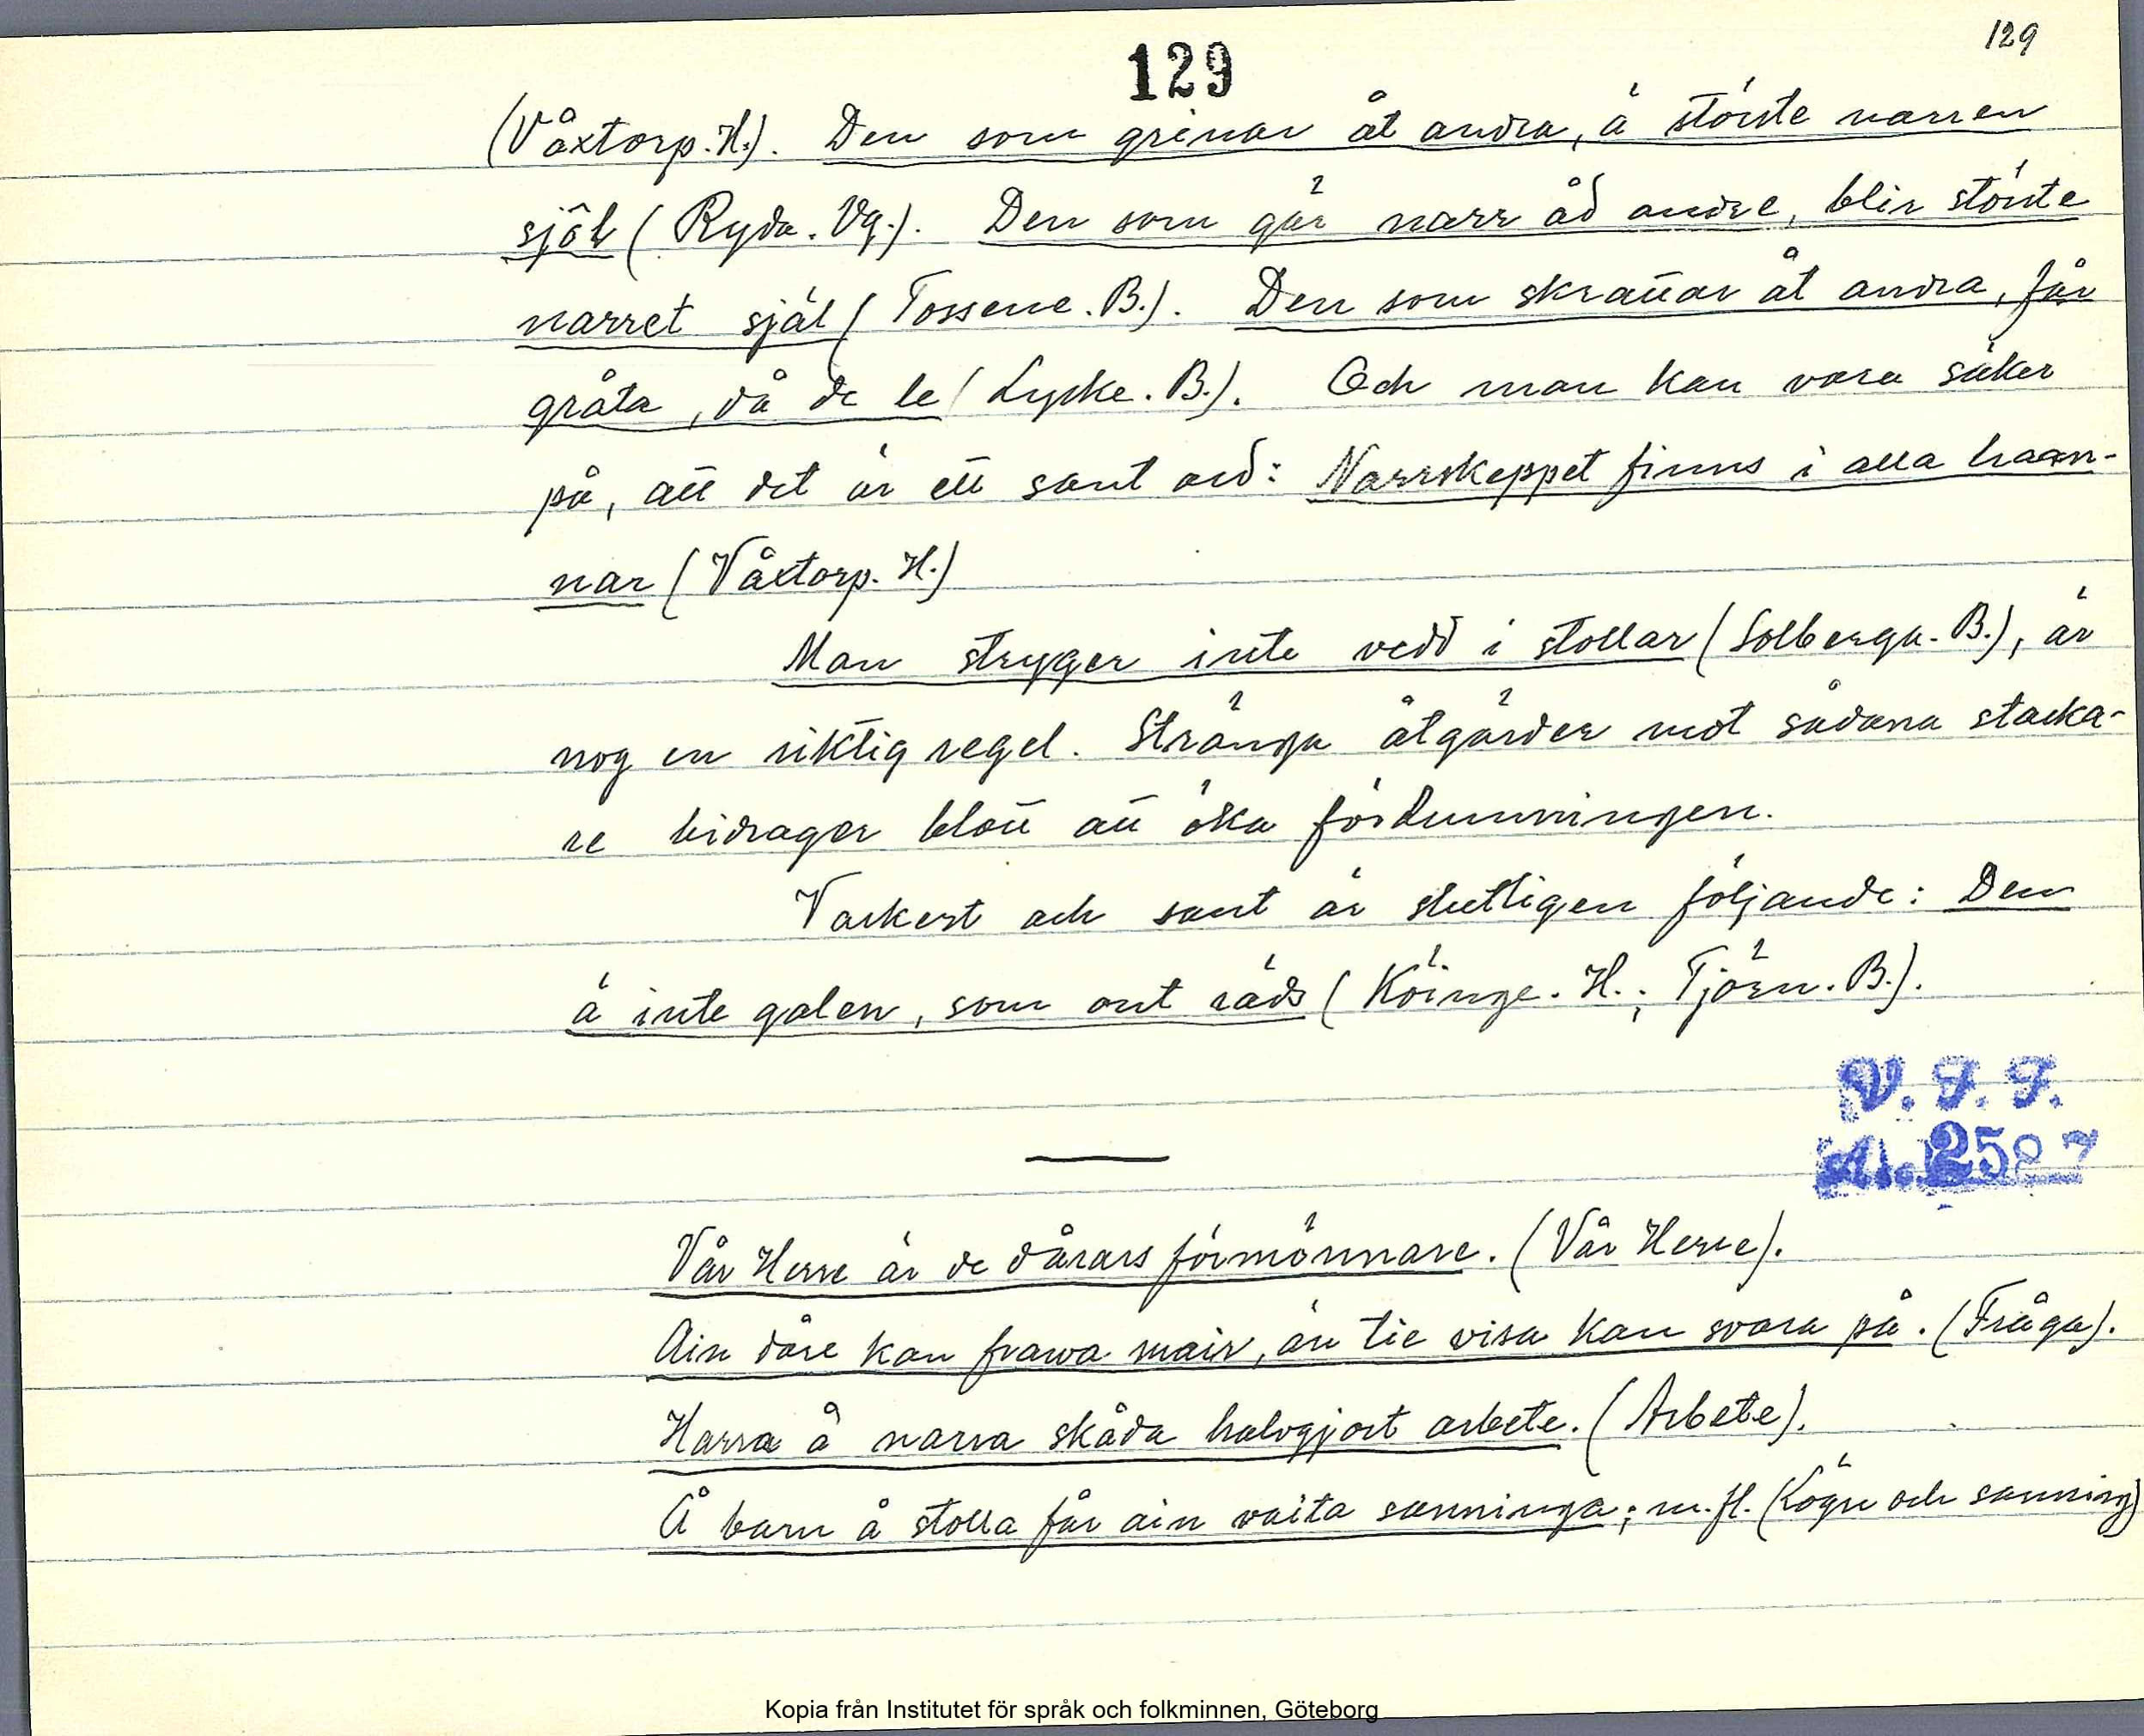 129
129
(Våxtorp. H.). Den som grinar åt andra, ä störste narren
själ (Ryda. Vg.). Den som gär narr åd andre, blir störste
narret själ (Tossene. B.). Den som skrattar åt andra, får
gråta, då de le (Lycke. B.). Och man kan vara säker
på, att det är ett sant ord: Narrskeppet finns i alla haan-
nar (Våxtorp. H.)
Man stryger inte vedd i stollar (Solberga. B.), är
nog en riktig regel. Stränga åtgärder mot sådana stacka-
re bidrager blott att öka fördumningen.
Vackert och sant är slutligen följande: Den
ä inte galen, som ont räds (Köinge. H.; Tjörn. B.).
V. F. F.
2587
Vår Herre är de dårars förmönnare. (Vår Herre).
Ain dåre kan frawa mair, än tie visa kan svara på. (Fråga).
Harra å narra skåda halvgjort arbete. (Arbete).
Å barn å stolla får ain vaita sanninga; m. fl. (Lögn och sanning)
Kopia från Institutet för språk och folkminnen, Göteborg